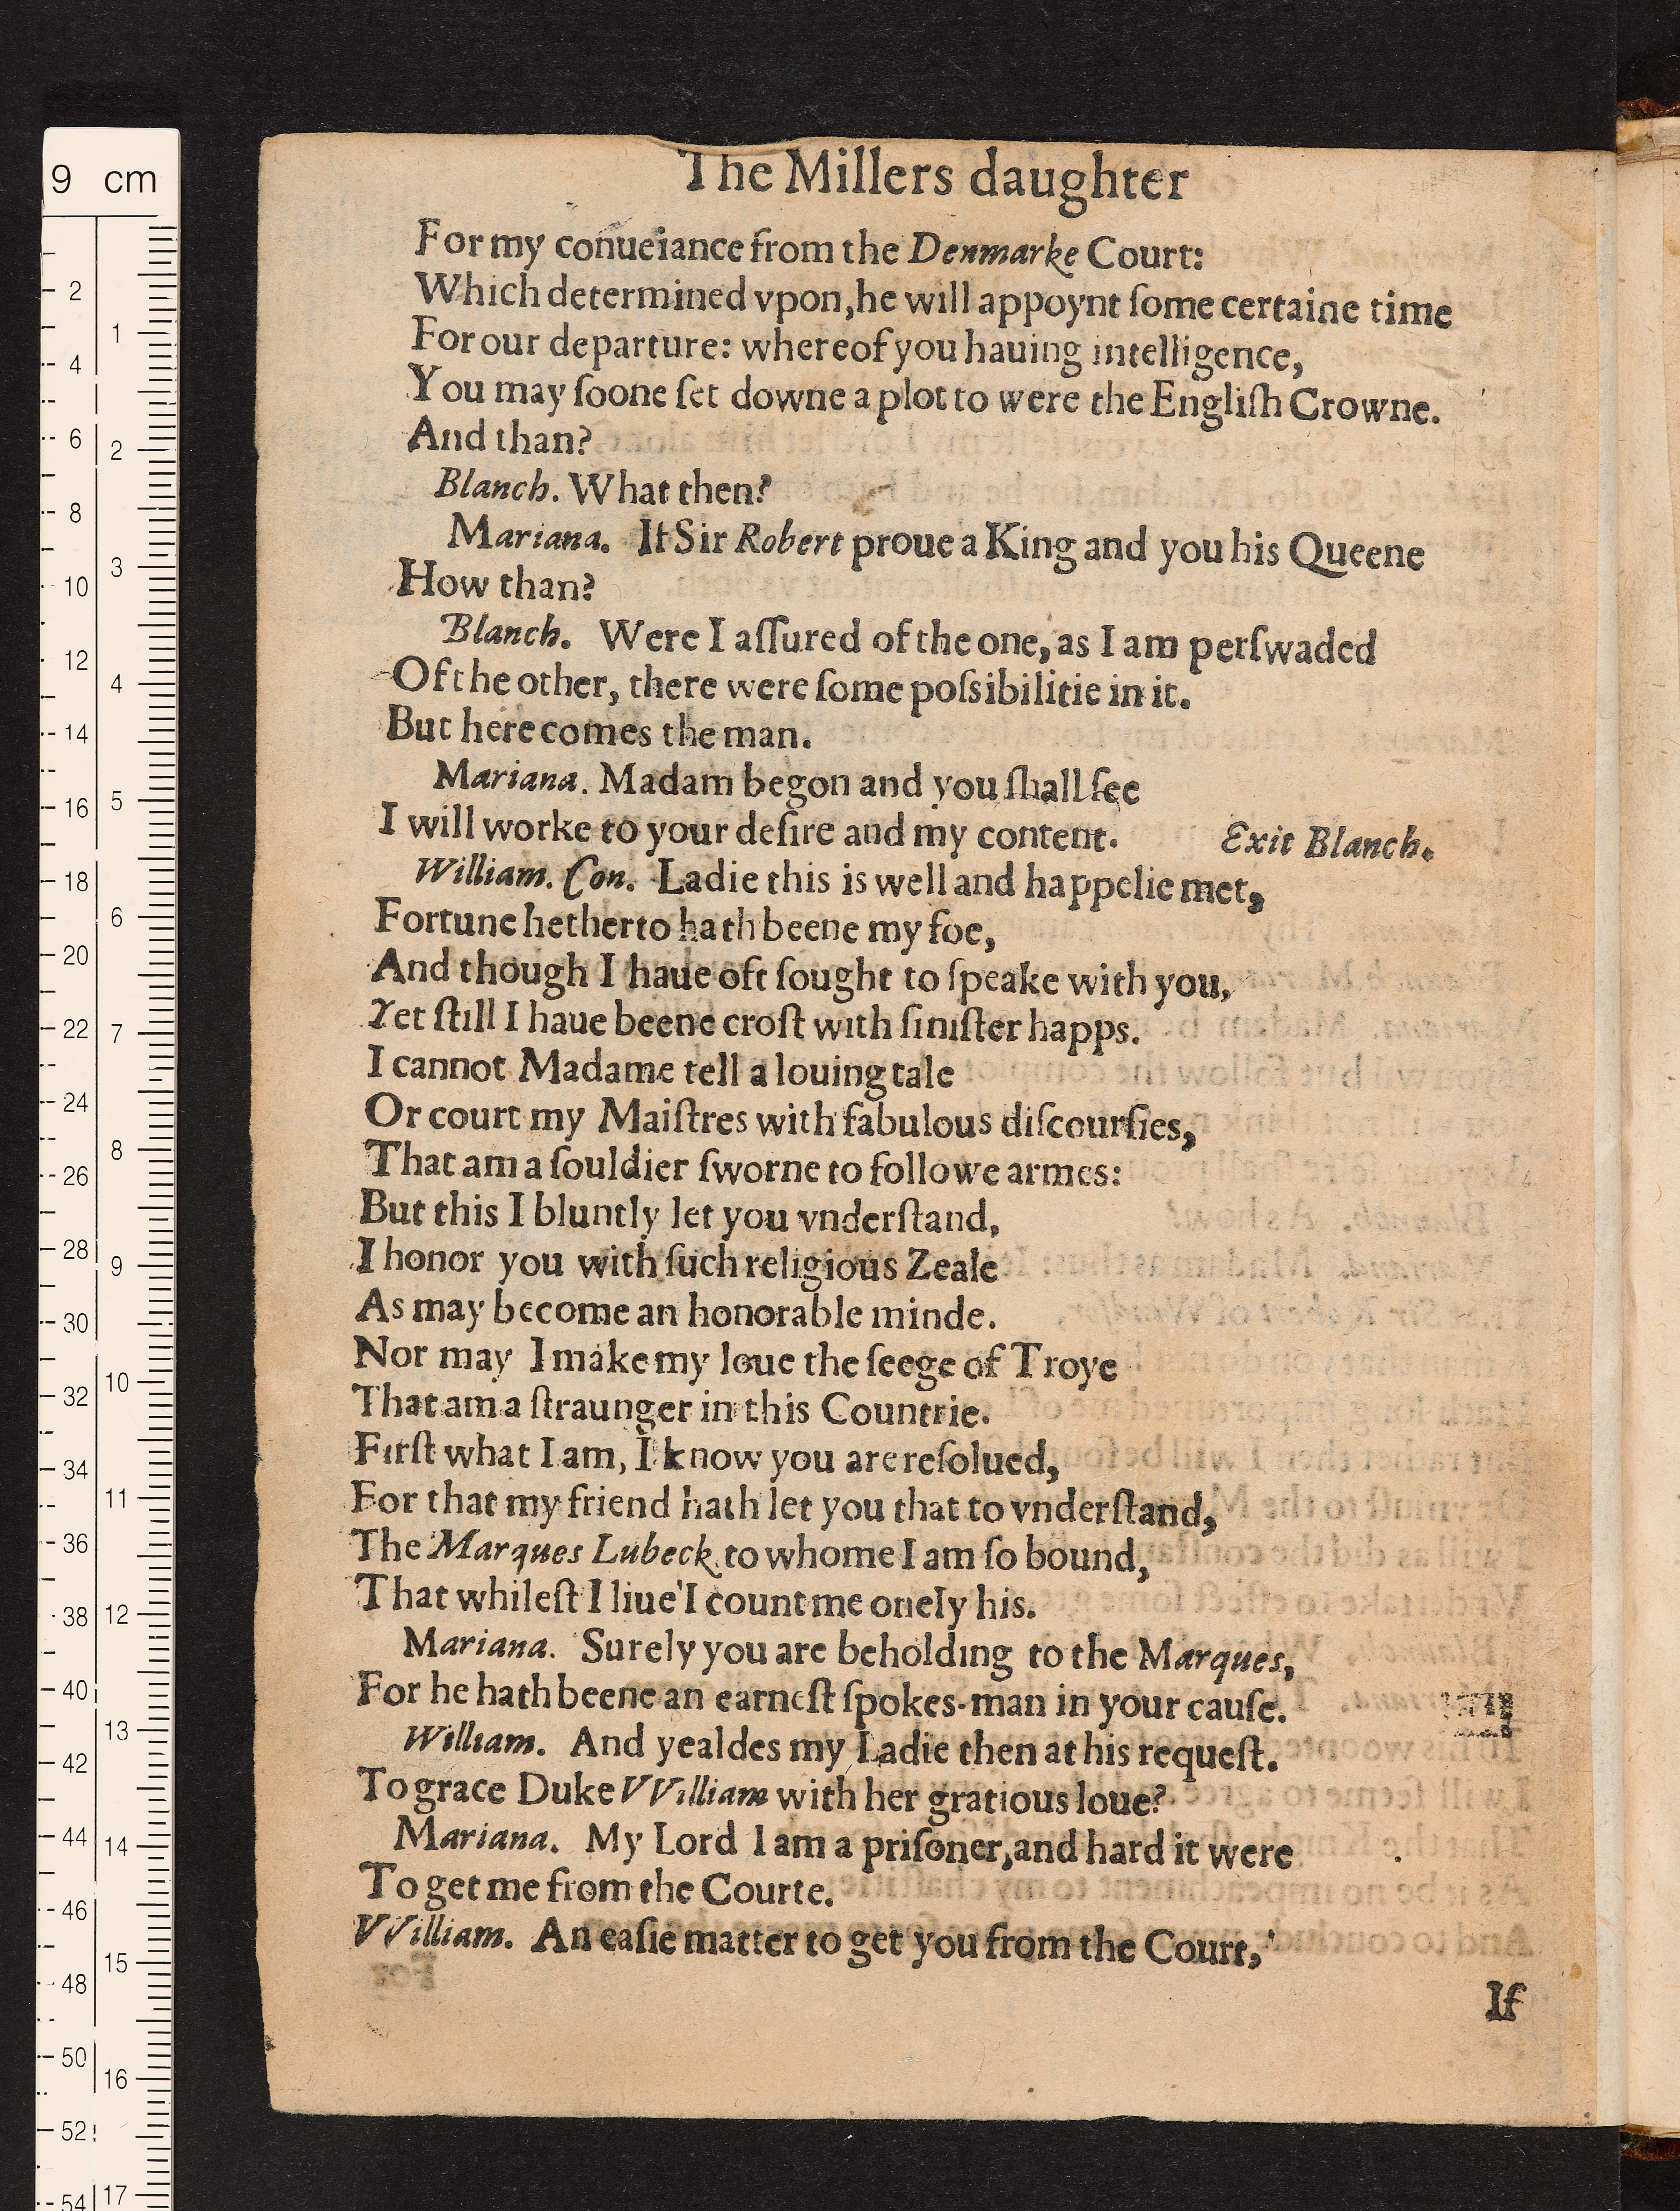 The Millers daughter
For my conueiance from the Denmarke Court:
Which determined vpon, he will appoynt ſome certaine time
For our departure: whereof you hauing intelligence,
You may ſoone ſet downe a plot to were the Engliſh Crowne.
And than?
Blanch. What then?
Mariana. If Sir Robert proue a King and you his Queene
How than?
Blanch. Were I aſſured of the one, as I am perſwaded
Of the other, there were ſome poſsibilitie in it.
But here comes the man.
Mariana. Madam begon and you ſhall ſee
I will worke to your deſire and my content. Exit Blanch.
William. Con. Ladie this is well and happelie met,
Fortune hetherto hath beene my foe,
And though I haue oft ſought to ſpeake with you,
Yet ſtill I haue beene croſt with ſiniſter happs.
I cannot Madame tell a louing tale
Or court my Maiſtres with fabulous diſcourſies,
That am a ſouldier ſworne to followe armes:
But this I bluntly let you vnderſtand,
I honor you with ſuch religious Zeale
As may become an honorable minde.
Nor may I make my loue the ſeege of Troye
That am a ſtraunger in this Countrie.
Firſt what I am, I know you are reſolued,
For that my friend hath let you that to vnderſtand,
The Marques Lubeck to whome I am ſo bound,
That whileſt I liue I count me onely his.
Mariana. Surely you are beholding to the Marques,
For he hath beene an earneſt ſpokes-man in your cauſe.
William. And yealdes my Ladie then at his requeſt.
To grace Duke VVilliam with her gratious loue?
Mariana. My Lord I am a priſoner, and hard it were
To get me from the Courte.
VVilliam. An eaſie matter to get you from the Court,
If
9 cm
2
4
6
8
10
12
14
16
18
20
22
24
26
28
30
32
34
36
38
40
42
44
46
48
50
52
54
1
2
3
4
5
6
7
8
9
10
11
12
13
14
15
16
17